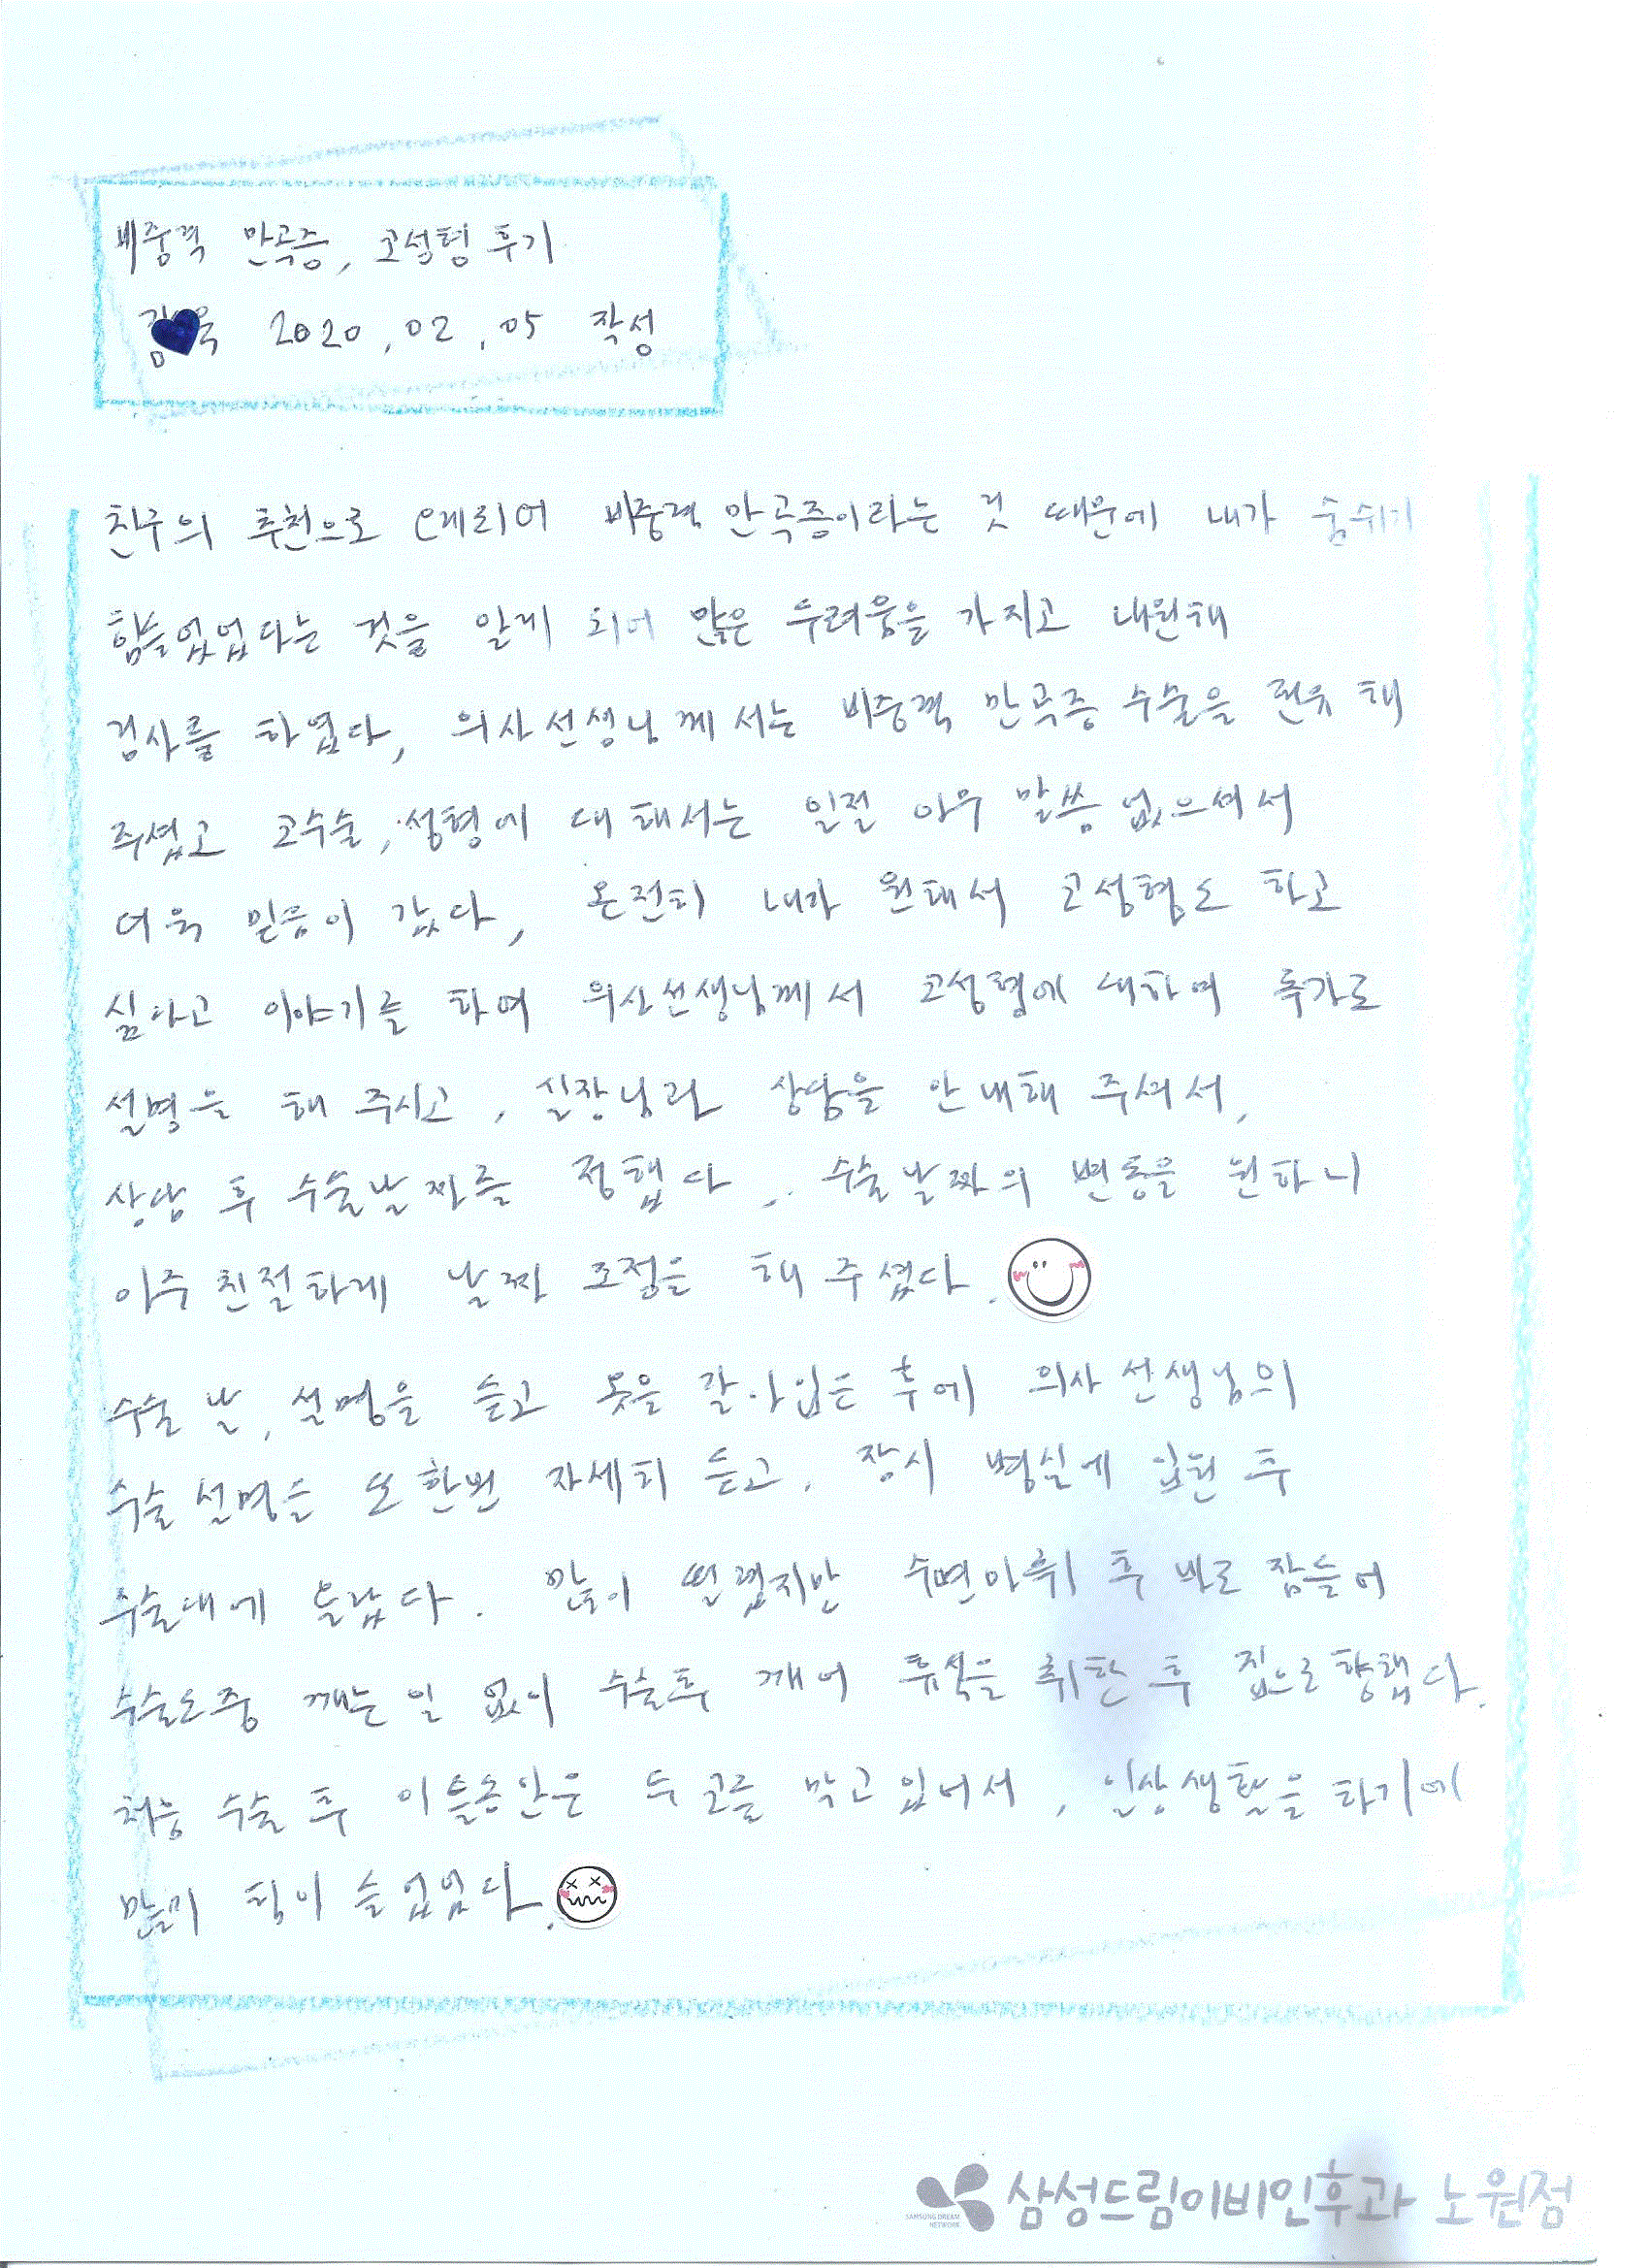 비중격 만곡증, 코성형 후기
2020.02.05 작성
친구의 추천으로 오게되어 비중격 만곡증이라는 것 때문에 내가 숨쉬기
힘들었었다는 것을 알게 되어 많은 두려움을 가지고 내원해
검사를 하였다, 의사선생님께서는 비중격 만곡증 수술을 권유 해
주셨고 코수술, 성형에 대해서는 일절 아무 말씀 없으셔서
더욱 믿음이 갔다, 온전히 내가 원해서 코성형도 하고
싶다고 이야기를 하여 의사선생님께서 코성형에 대하여 추가로
설명을 해 주시고, 실장님과 상담을 안내해 주셔서,
상담 후 수술날짜를 정했다. 수술날짜의 변동을 원하니
아주 친절하게 날짜 조정을 해 주셨다.
수술 날, 설명을 듣고 옷을 갈아입은 후에 의사선생님의
수술설명을 또 한번 자세히 듣고, 잠시 병실에 입원 후
수술대에 올랐다. 많이 떨렸지만 수면마취 후 바로 잠들어
수술도중 깨는 일 없이 수술후 깨어 휴식을 취한 후 집으로 향했다.
처음 수술 후 이틀동안은 두 코를 막고 있어서, 일상생활을 하기에
많이 힘이 들었었다.
삼성드림이비인후과 노원점
SAMSUNG DREAM
NETWORK